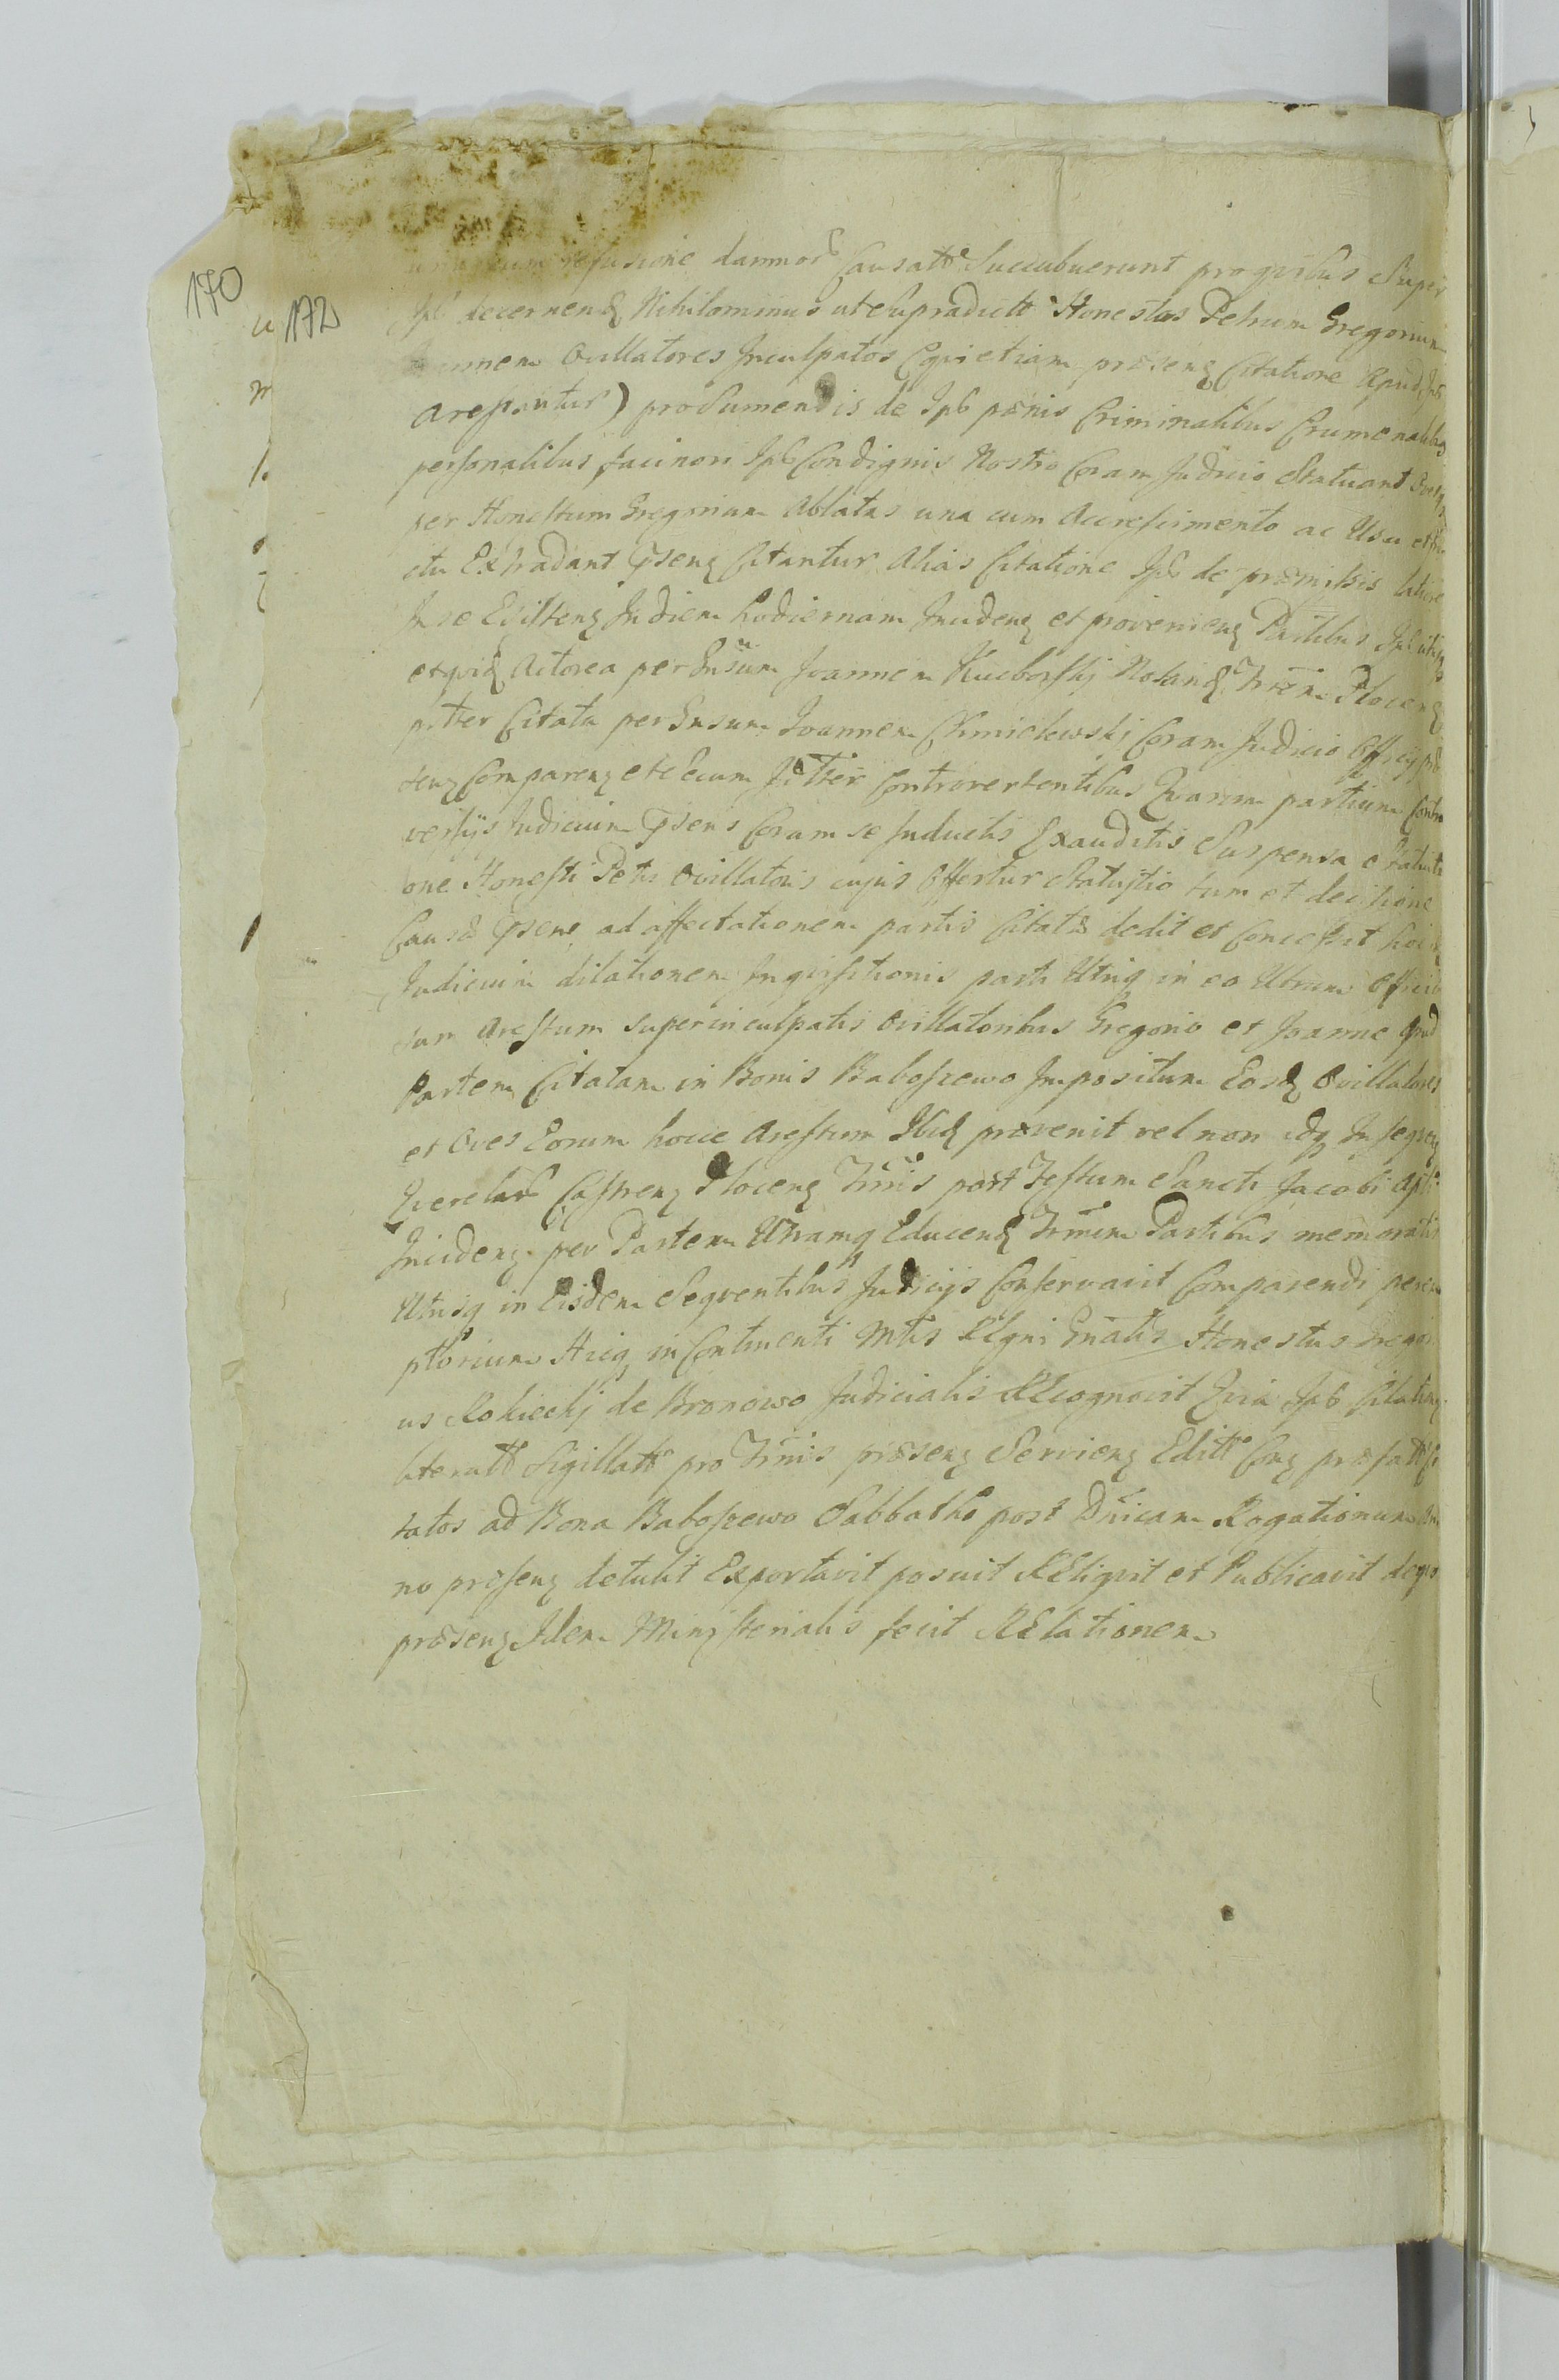 170
172
refusione damnor Causatt Succubuerunt pro quibus Super
Ips decernend Nihilominus ut Supradictt Honestos Petrum Gregorium
Ovillatores Inculpatos (qui etiam præsenz Citatione Apud Ips
arestantur) pro Sumendis de Ips pænis Criminalibus Crumenalibus
personalibus facinori Ips Condignis Nostro Coram Judicio Statuant
per Honestum Gregorium Ablatas una cum Accrescimento ac Usu
ctu Extradant Psenz Citantur Alias Citatione Ips de præmissis latius
In se Existenz In diem hodiernam Incidenz et provenienz Partibus Ips
et quid Actorea per Gnsum Joannem Kucborskj Notand Trēn Plocenz
p. tter Citata per Gnsum Joannem Chmielewskj Coram Judicio Officij
tenz Comparenz et Secum Jctter Controvertentibus Quarum partium Contro
versijs Judicium Psens Coram se Inductis Exauditis Suspensa Statuti
one Honesti Petri Ovillatoris cujus Offertur Statujtio tum et decisione
Causæ Psenz ad affectationem partis Citatæ dedit et Concessit
Judicium dilationem Inquisitionis parti Utriq in eo Utrum Officio
sum Arestum super inculpatis Ovillatoribus Gregorio et Joanne apud
Partem Citatam in Bonis Baboszewo Impositum Eosd Ovillatores
et Oves Eorum hocce Arestum Ibid prævenit vel non idq In seqven
Querelar Castrenz Plocenz Trnis post Festum Sancti Jacobi Apli
Incidenz per Partem Utramq Educend Trminum Partibus memoratis
Utrisq in Eisdem Seqventibus Judicijs Conservavit Comparendi perem
ptorium Hicq in Continenti Mtris REgni Gnalis Honestus Gregori
us Rokickj de Bronowo Judicialis REcognovit Quia Ips Citationz
literatt Sigillatt pro Trnis præsenz Servienz Editt Conz præfatt Ci
tatos ad Bona Baboszewo Sabbatho post Dnicam Rogationum An
no præsenz detulit Exportavit posuit REliqvit et Publicavit de quo
præsenz Idem Ministerialis fecit RElationem